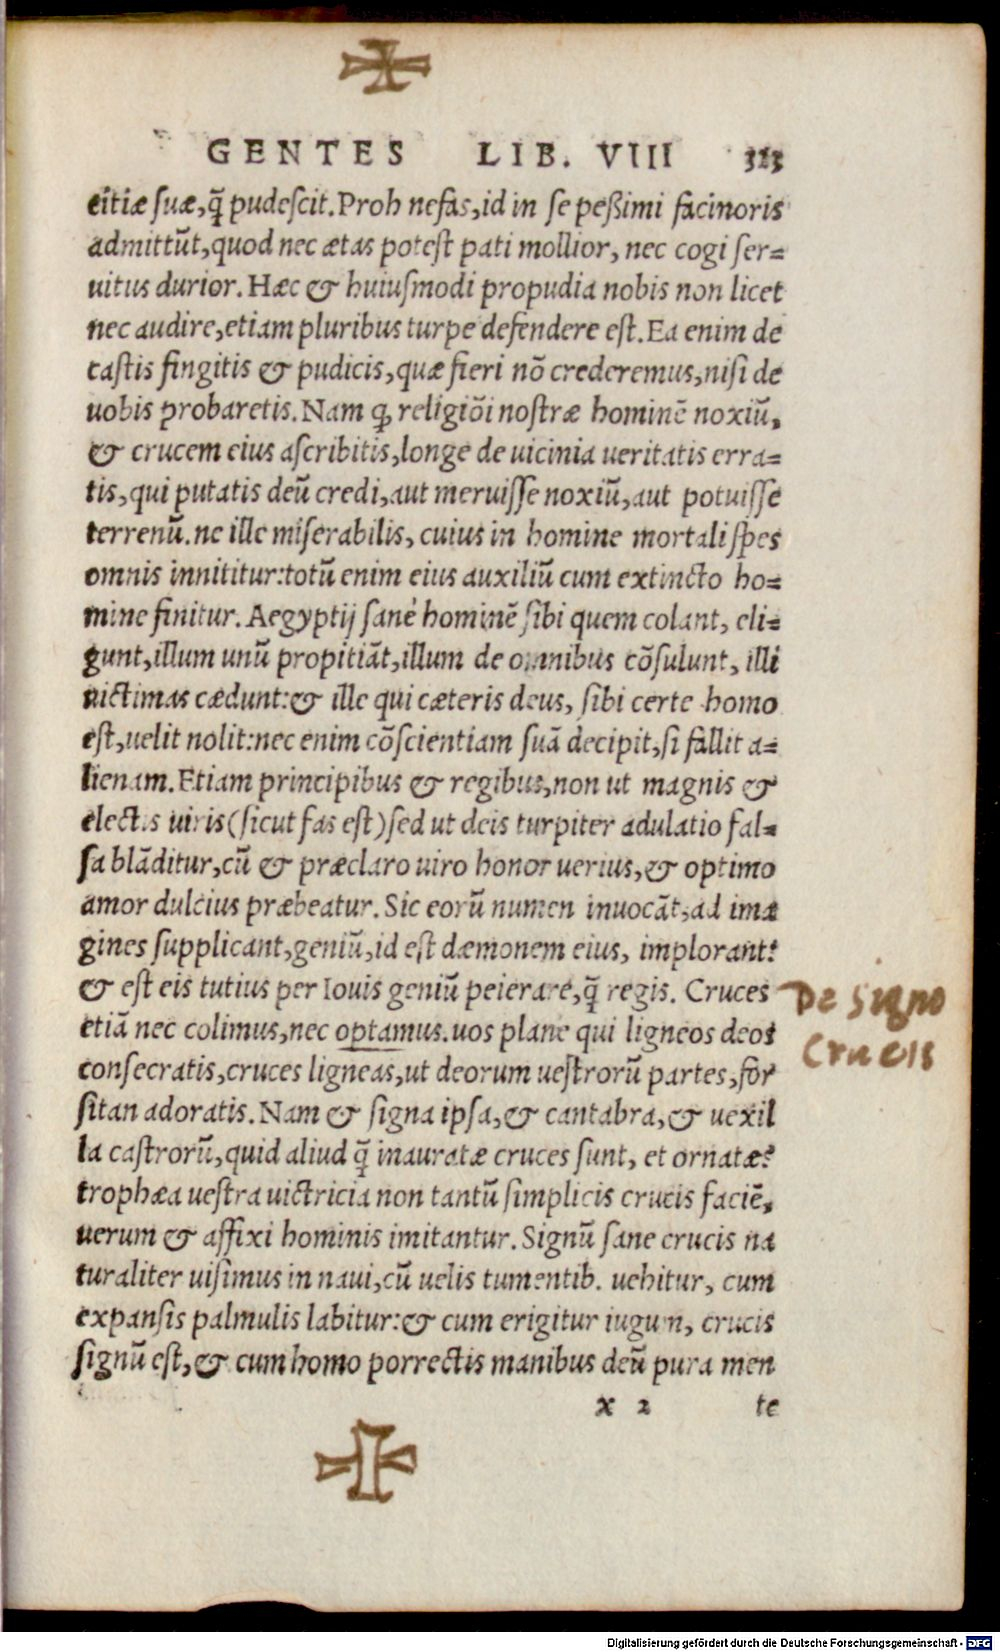 GENTES LIB. VIII 323
citiæ suæ, q̃ pudescit. Proh nefas, id in se peßimi facinoris
admittũt, quod nec ætas potest pati mollior, nec cogi ser=
uitus durior. Hæc & huiusmodi propudia nobis non licet
nec audire, etiam pluribus turpe defendere est. Ea enim de
castis fingitis & pudicis, quæ fieri nõ crederemus, nisi de
uobis probaretis. Nam q̃ religiõi nostræ hominẽ noxiũ,
& crucem eius ascribitis, longe de uicinia ueritatis erra=
tis, qui putatis deũ credi, aut meruisse noxiũ, aut potuisse
terrenũ. ne ille miserabilis, cuius in homine mortali spes
omnis innititur: totũ enim eius auxiliũ cum extincto ho=
mine finitur. Aegyptij sanè hominẽ sibi quem colant, eli=
gunt, illum unũ propitiãt, illum de omnibus cõsulunt, illi
uictimas cædunt: & ille qui cæteris deus, sibi certe homo
est, uelit nolit: nec enim cõscientiam suã decipit, si fallit a=
lienam. Etiam principibus & regibus, non ut magnis &
electis uiris (sicut fas est) sed ut deis turpiter adulatio fal=
sa blãditur, cũ & præclaro uiro honor uerius, & optimo
amor dulcius præbeatur. Sic eorũ numen inuocãt, ad ima
gines supplicant, geniũ, id est dæmonem eius, implorant:
& est eis tutius per Iouis geniũ peierare, q̃ regis. Cruces
De signo
etiã nec colimus, nec optamus. uos plane qui ligneos deos
Crucis
consecratis, cruces ligneas, ut deorum uestrorũ partes, for
sitan adoratis. Nam & signa ipsa, & cantabra, & uexil
la castrorũ, quid aliud q̃ inauratæ cruces sunt, et ornatæ?
trophæa uestra uictricia non tantũ simplicis crucis faciẽ,
uerum & affixi hominis imitantur. Signũ sane crucis na
turaliter uisimus in naui, cũ uelis tumentib. uehitur, cum
expansis palmulis labitur: & cum erigitur iugum, crucis
signũ est, & cum homo porrectis manibus deũ pura men
x 2 te
Digitalisierung gefördert durch die Deutsche Forschungsgemeinschaft - DFG